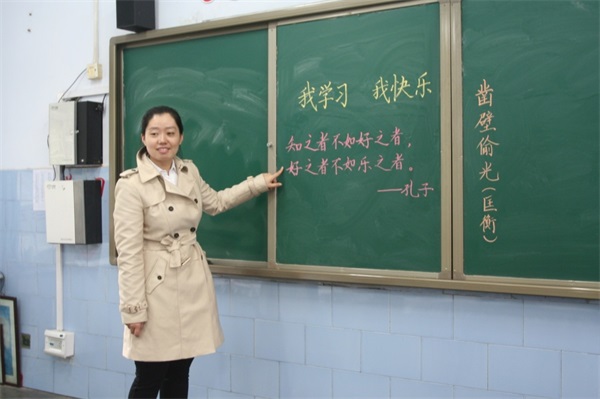 我学习 我快乐
知之者不如好之者，
好之者不如乐之者。
——孔子
凿壁偷光（匡衡）